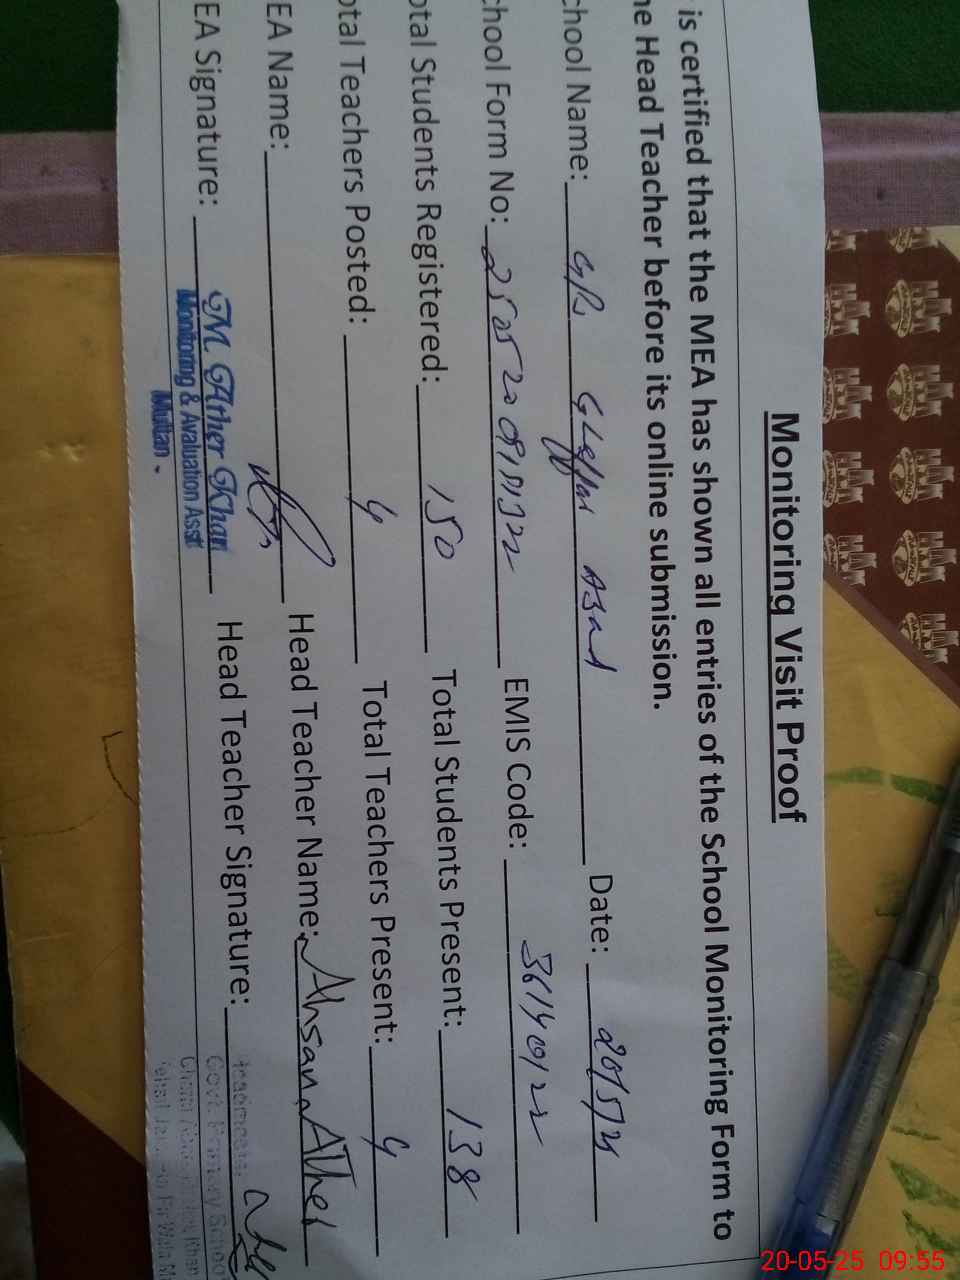 Monitoring Visit Proof
is certified that the MEA has shown all entries of the School Monitoring Form to
he Head Teacher before its online submission.
chool Name: Date: 20/5/25
chool Form No: EMIS Code: 36140122
otal Students Registered: 150 Total Students Present: 138
otal Teachers Posted: 4 Total Teachers Present: 4
EA Name: Head Teacher Name: Ahsann Ather
EA Signature: M. Ather Khan Head Teacher Signature:
Monitoring & Avaluation Asstt
Multan.
Govt. Primary School
20-05-25 09:55